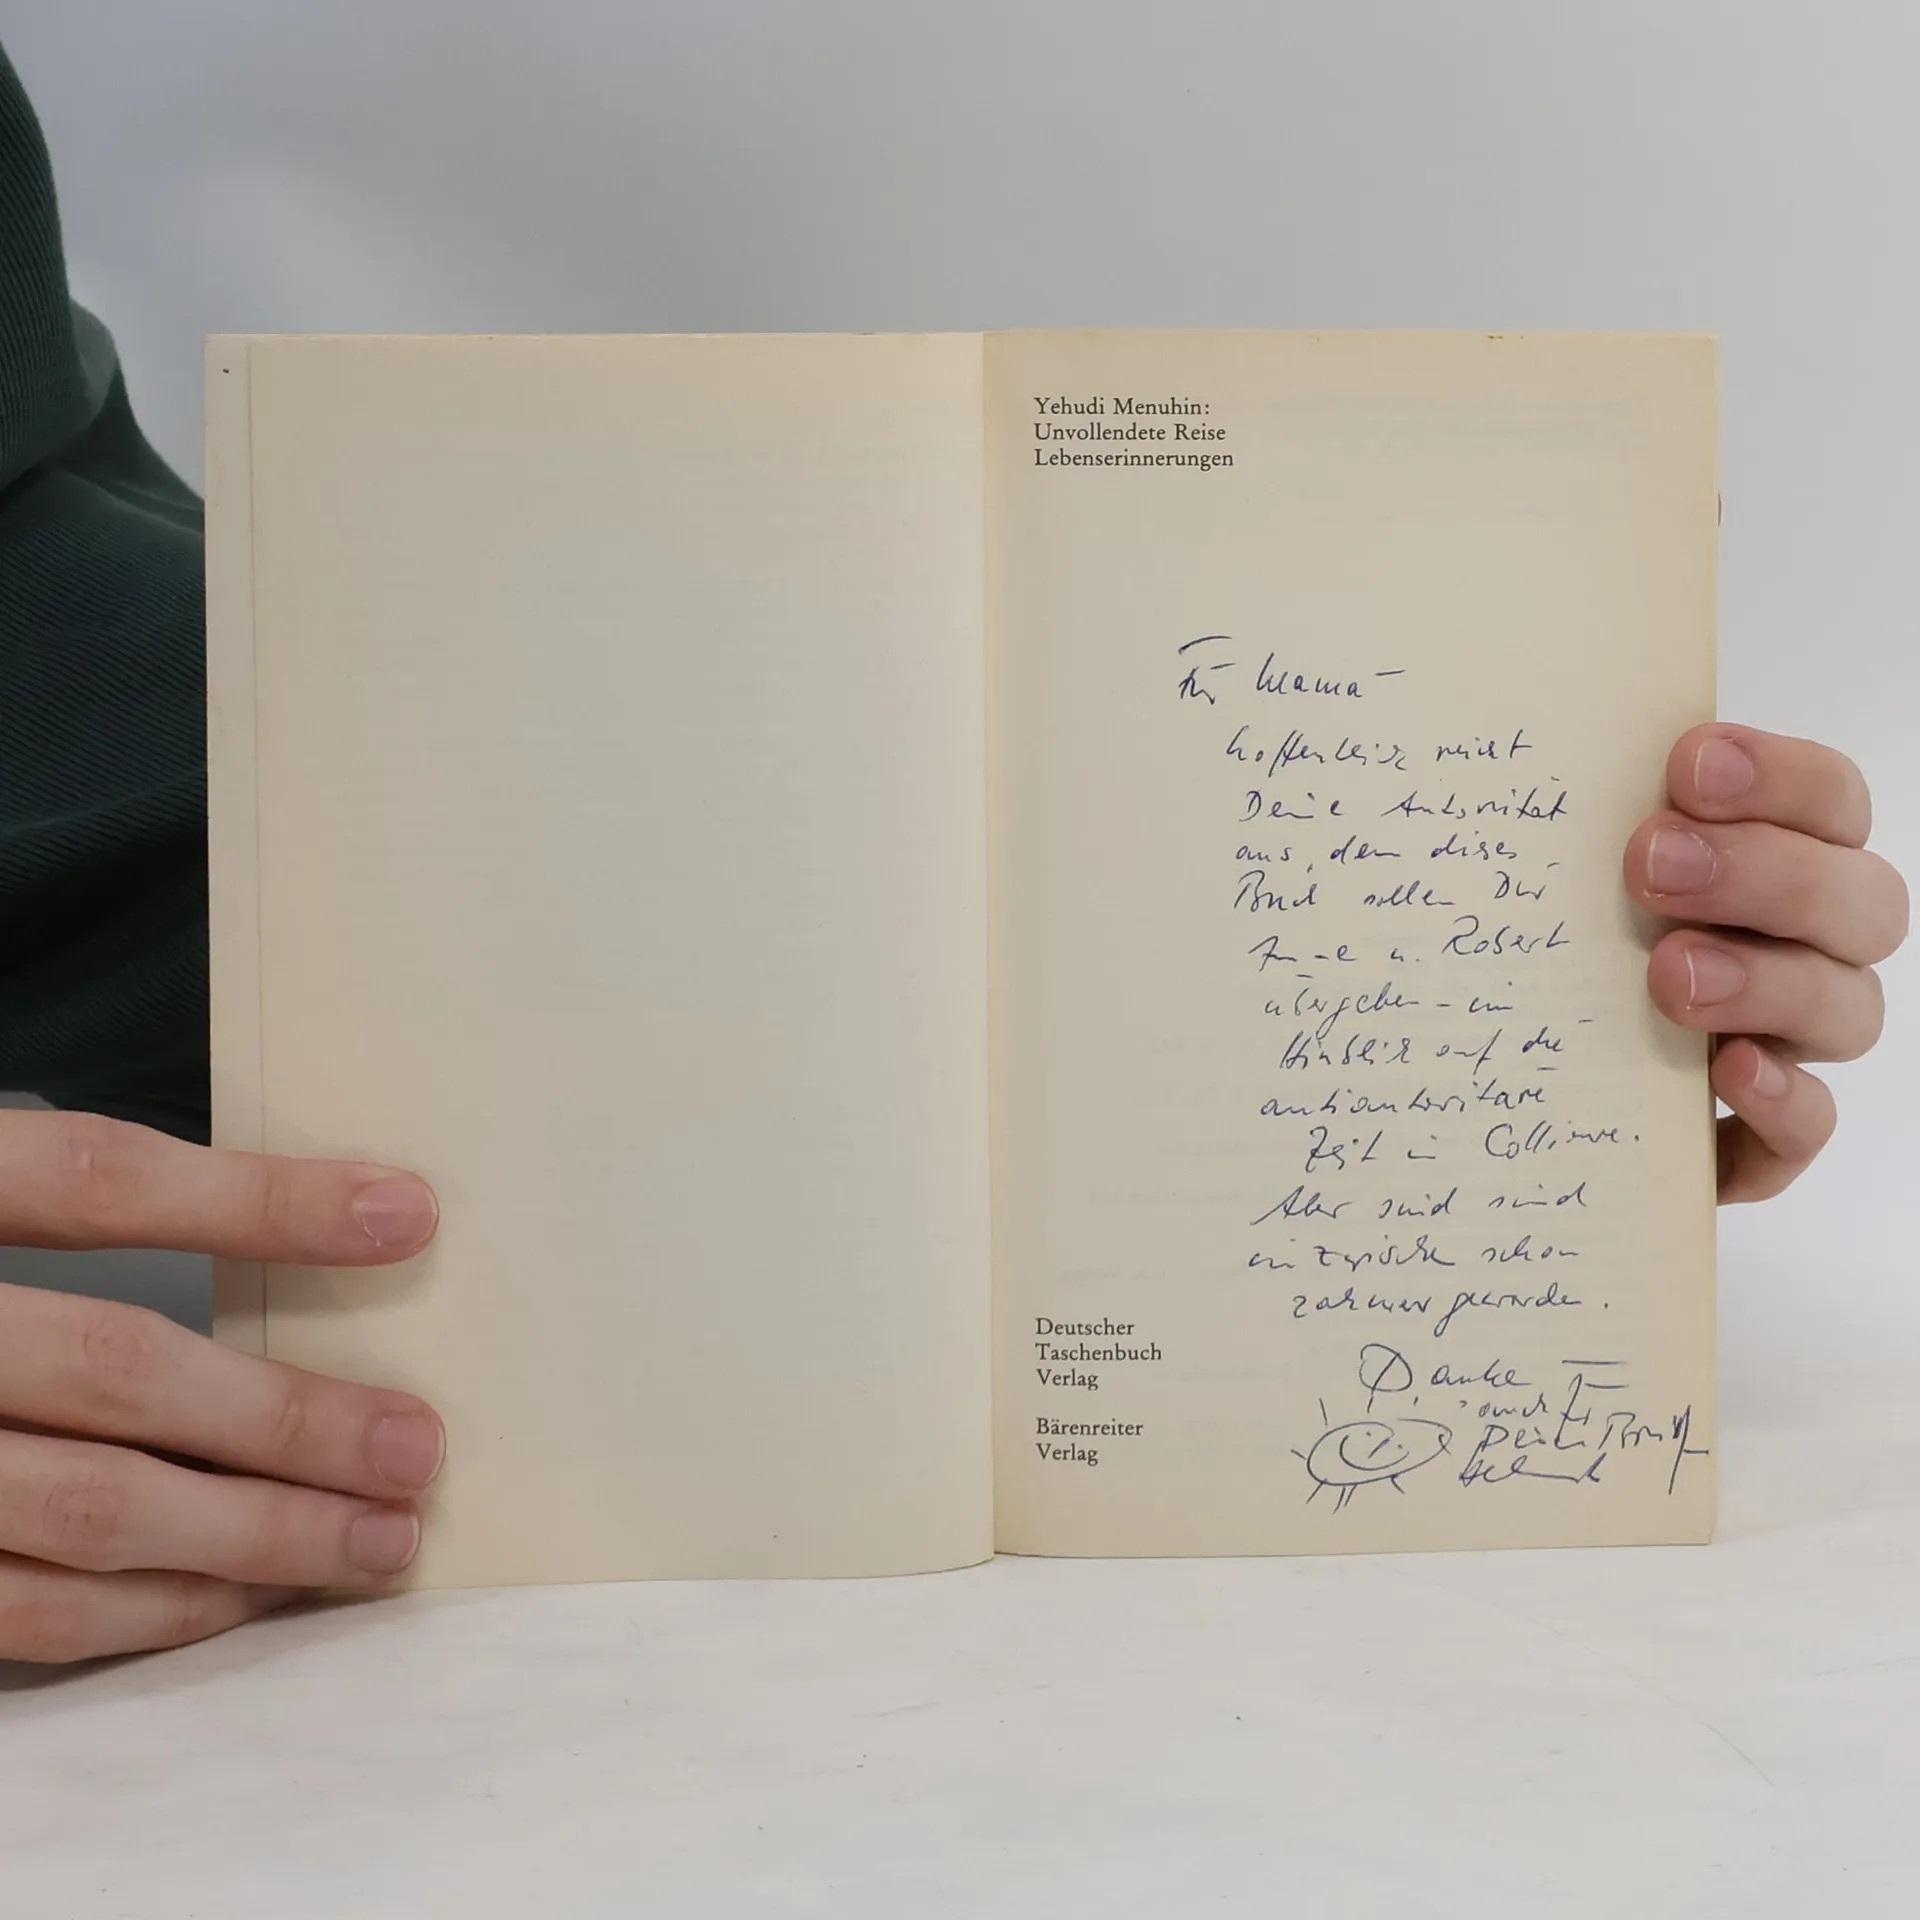 Yehudi Menuhin:
Unvollendete Reise
Lebenserinnerungen
Für Mama –
hoffentlich reicht
Deine Autorität
aus, denn dieses
Buch sollen Dir
u. Robert
übergeben – im
Hinblick auf die
antiautoritäre
Zeit in Collioure.
Aber sind sind
inzwischen schon
zahmer geworden.
Danke
auch für
Deinen Brief
Helmut
Deutscher
Taschenbuch
Verlag
Bärenreiter
Verlag